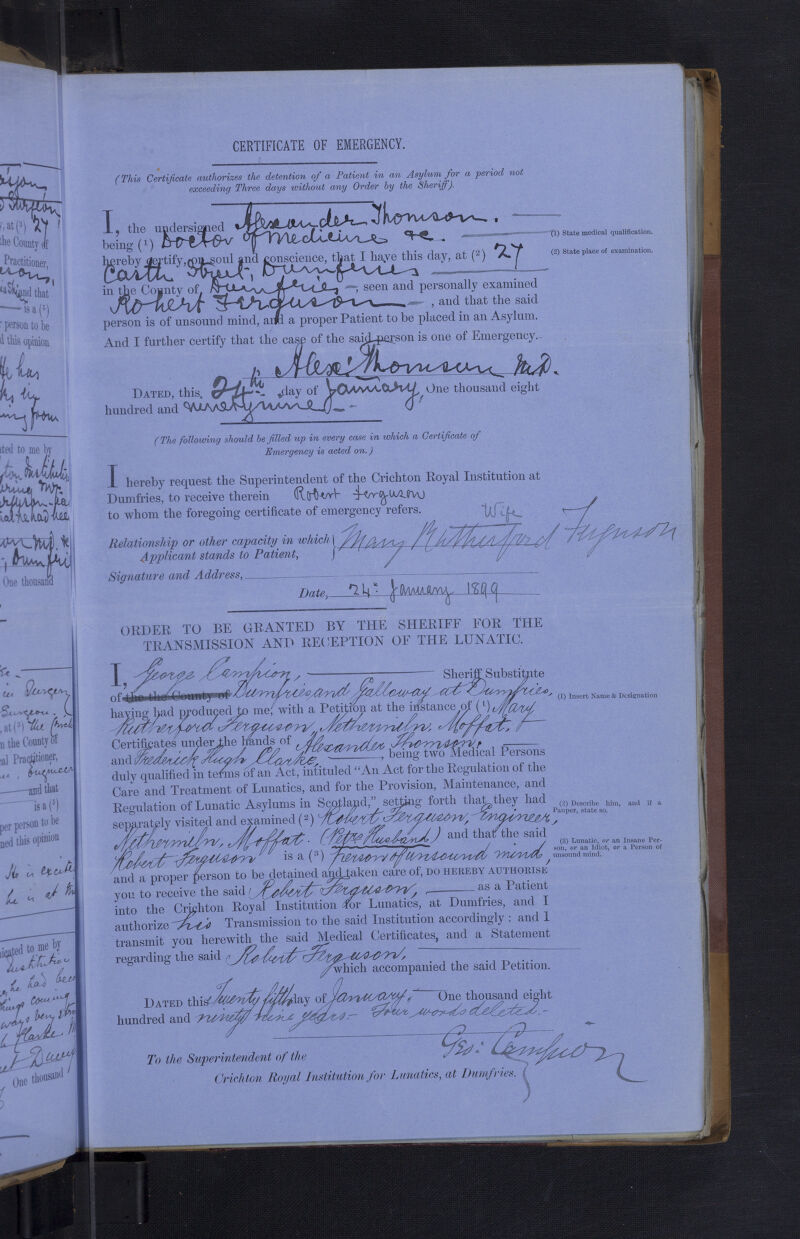 CERTIFICATE OF EMERGENCY.
(This Certificate authorizes the detention of a Patient in an Asylum for a period not
exceeding Three days without any Order by the Sheriff).
I, the undersigned Alexander Thomson.
being (1) Doctor of Medicine &c.
(1) State medical qualification.
hereby certify, on soul and conscience, that I have this day, at (2) 27
(2) State place of examination.
Castle Street, Dumfries
in the County of, Dumfries, seen and personally examined
Robert Ferguson, and that the said
person is of unsound mind, and a proper Patient to be placed in an Asylum.
And I further certify that the case of the said person is one of Emergency.
Alexr Thomson M.D.
DATED, this, 24th day of January, One thousand eight
hundred and ninety nine
(The following should be filled up in every case in which a Certificate of
Emergency is acted on.)
I hereby request the Superintendent of the Crichton Royal Institution at
Dumfries, to receive therein Robert Ferguson
to whom the foregoing certificate of emergency refers.
Wife
Relationship or other capacity in which
Applicant stands to Patient,
Mary Rutherford Ferguson
Signature and Address,
Date, 24th January 1899
ORDER TO BE GRANTED BY THE SHERIFF FOR THE
TRANSMISSION AND RECEPTION OF THE LUNATIC.
I, George Campion, Sheriff Substitute
of the the County of Dumfries and Galloway at Dumfries,
(1) Insert Name & Designation
having had produced to me, with a Petition at the instance of (1) Mary
Rutherford Ferguson, Nethermiln, Moffat,
Certificates under the hands of Alexander Thomson,
and Frederick Hugh Clarke, being two Medical Persons
duly qualified in terms of an Act, intituled "An Act for the Regulation of the
Care and Treatment of Lunatics, and for the Provision, Maintenance, and
Regulation of Lunatic Asylums in Scotland," setting forth that they had
separately visited and examined (2) Robert Ferguson, Engineer,
(2) Describe him, and if a
Pauper, state so.
Nethermiln, Moffat. (Petrs Husband) and that the said
Robert Ferguson is a (3) Person of unsound mind,
(3) Lunatic, or an Insane Per-
son, or an Idiot, or a Person of
unsound mind.
and a proper person to be detained and taken care of, DO HEREBY AUTHORISE
you to receive the said Robert Ferguson, as a Patient
into the Crichton Royal Institution for Lunatics, at Dumfries, and I
authorize his Transmission to the said Institution accordingly: and I
transmit you herewith the said Medical Certificates, and a Statement
regarding the said Robert Ferguson,
which accompanied the said Petition.
DATED this Twenty fifth day of January, One thousand eight
hundred and ninety nine years – Four words deleted.–
Geo: Campion
To the Superintendent of the
Crichton Royal Institution for Lunatics, at Dumfries.